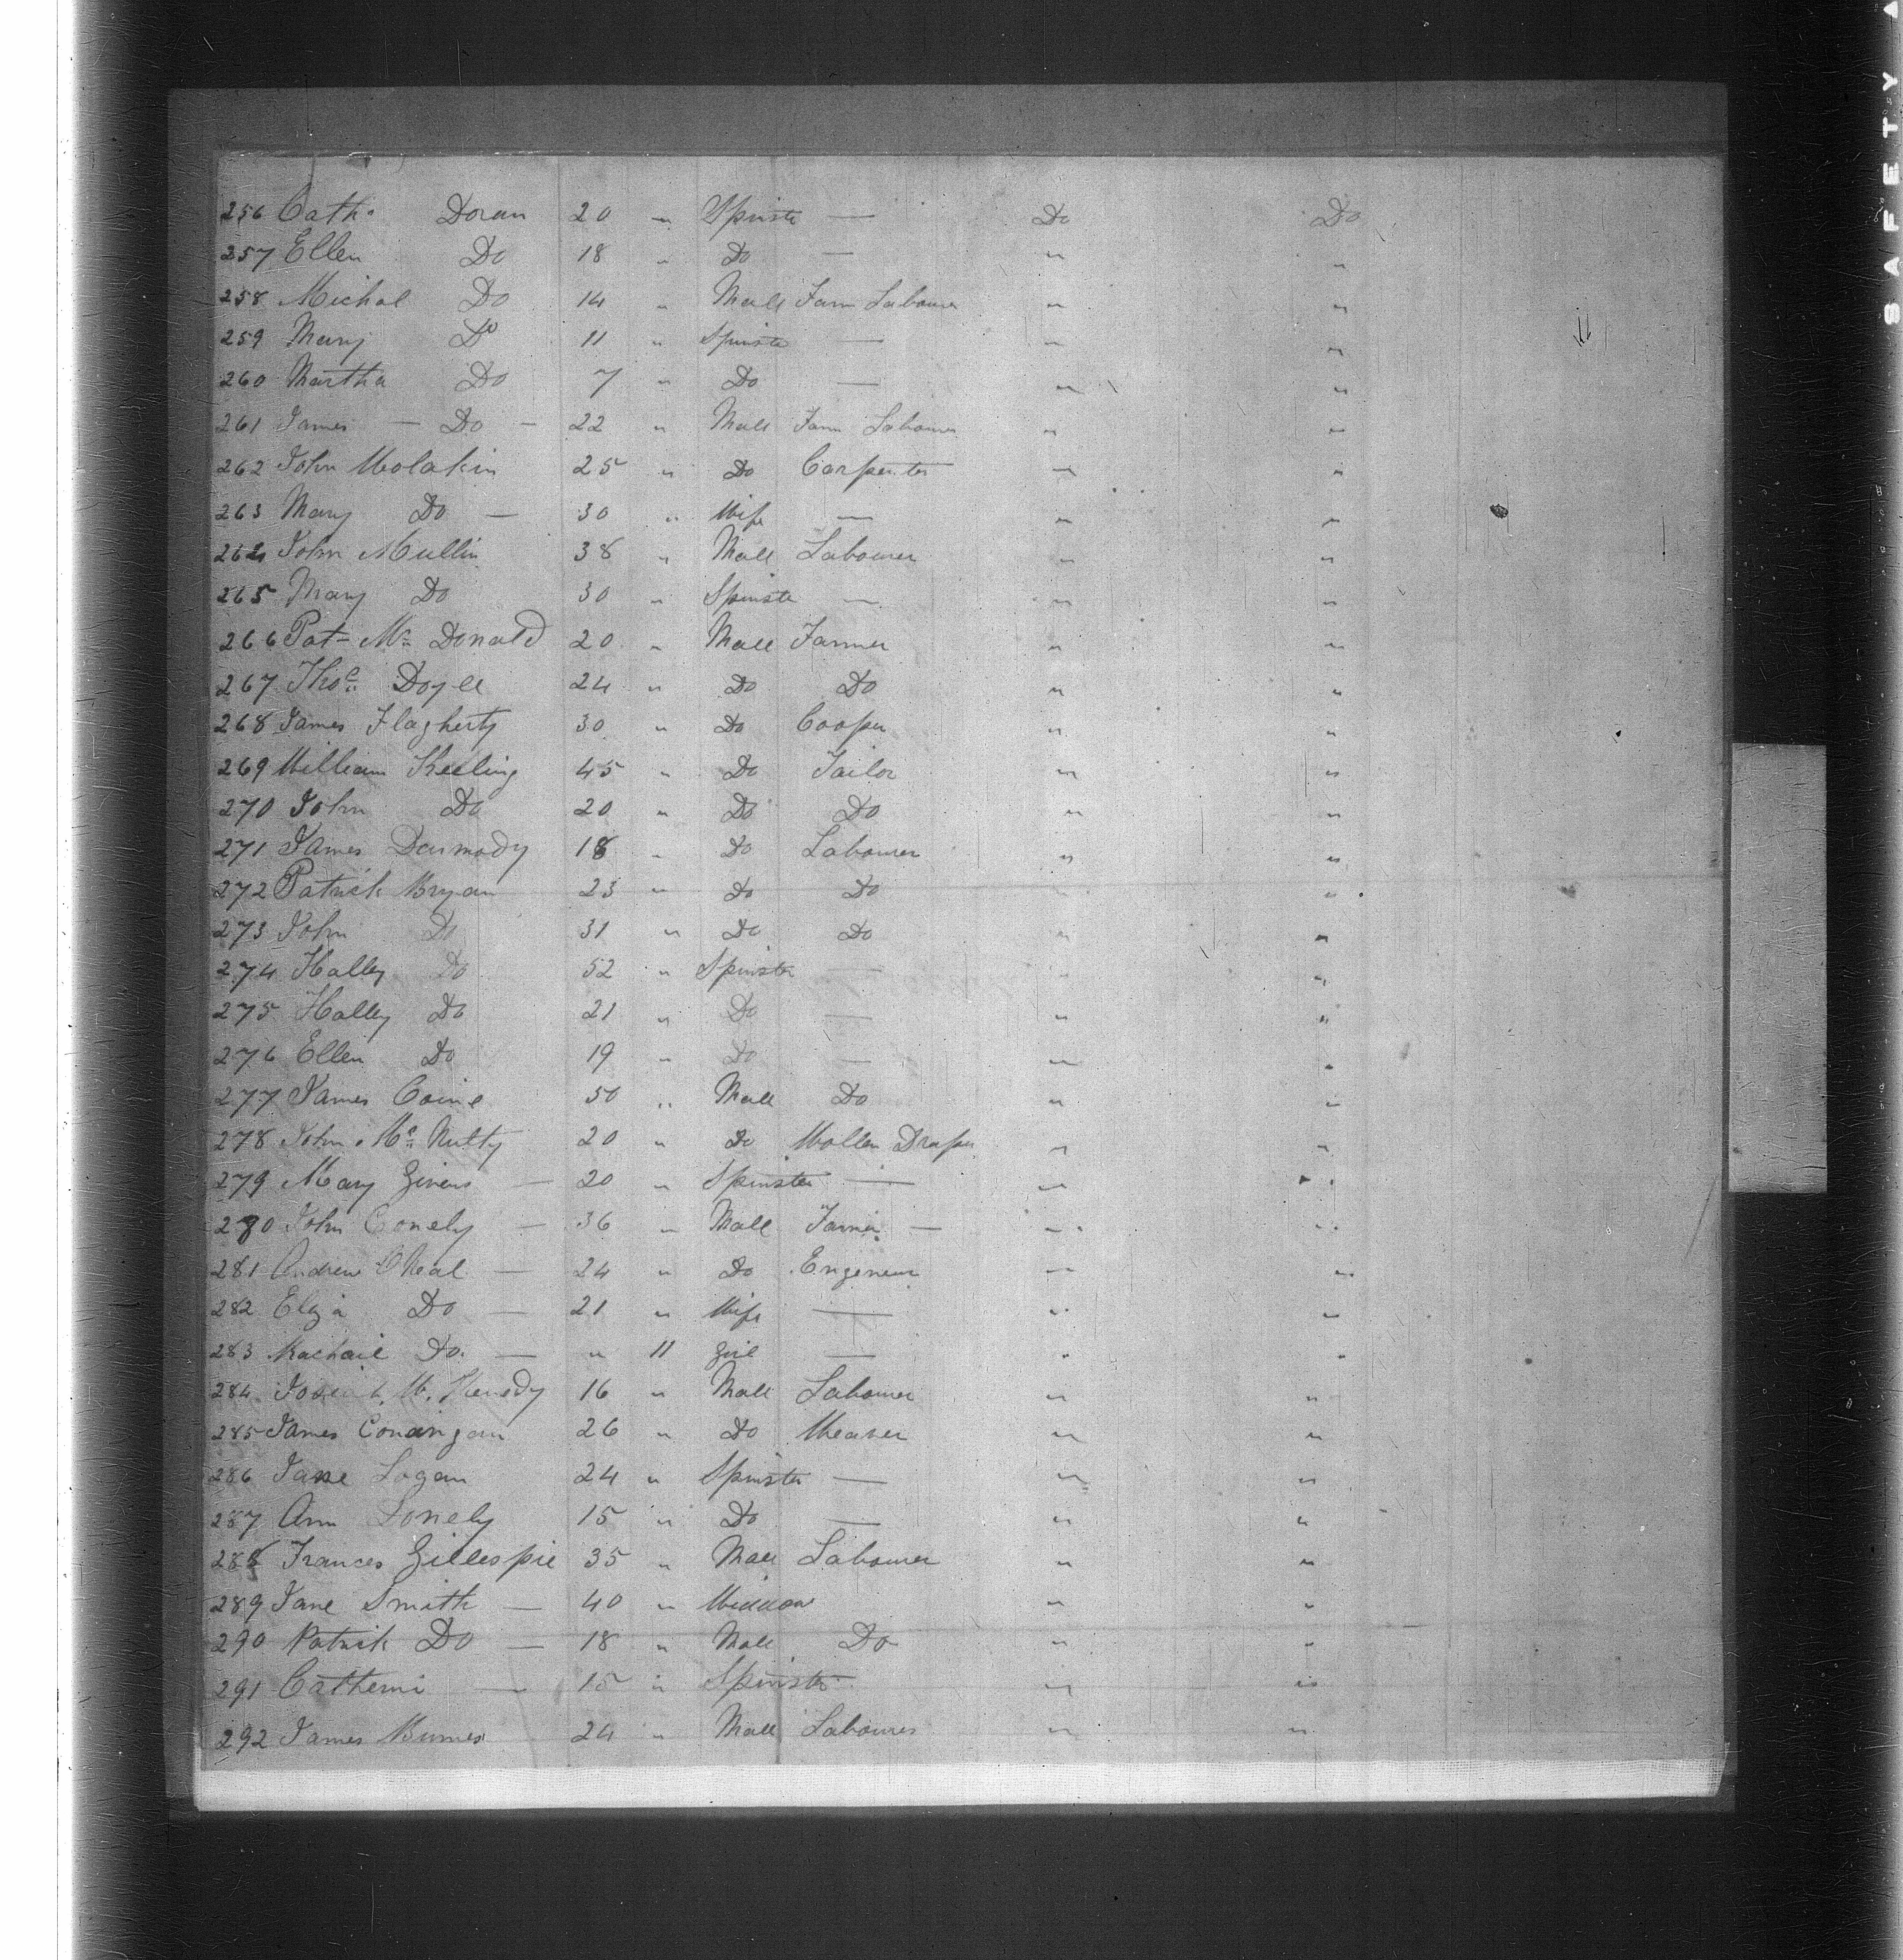 256 Cath. Doran 20 " Spinste — Do Do
257 Ellen Do 18 " Do — " "
258 Michal Do 14 " Male Farm Labourer " "
259 Mary Do 11 " Spinste — " "
260 Martha Do 7 " Do — " "
261 James — Do — 22 " Male Farm Labourer " "
262 John Molakin 25 " Do Carpenter " "
263 Mary Do — 30 " Wife — " "
264 John Mullin 38 " Male Labourer " "
265 Mary Do 30 " Spinste — " "
266 Pat- Mc Donald 20 " Male Farmer " "
267 Thos Doyle 24 " Do Do " "
268 James Flagherty 30 " Do Cooper " "
269 William Keeling 45 " Do Tailor " "
270 John Do 20 " Do Do " "
271 James Darmody 18 " Do Labourer " "
272 Patrick Bryan 23 " Do Do " "
273 John Do 31 " Do Do " "
274 Halley Do 52 " Spinster — " "
275 Halley Do 21 " Do — " "
276 Ellen Do 19 " Do — " "
277 James Coine 50 " Male Do " "
278 John Mc Nulty 20 " Do Wollen Draper " "
279 Mary Givens — 20 " Spinster — " "
280 John Conely — 36 " Male Farmer — " "
281 Andrew ONeal — 24 " Do Engeneer " "
282 Eliza Do — 21 " Wife — " "
283 Rachail Do. — " 11 Girl — " "
284 M. Kenedy 16 " Male Labourer " "
285 James Conaingam 26 " Do Weaver " "
286 Jane Logan 24 " Spinster — " "
287 Ann Conely 15 " Do — " "
288 Frances Gillespie 35 " Male Labourer " "
289 Jane Smith — 40 " Widdow " "
290 Patrick Do — 18 " Male Do " "
291 Catherni — 15 " Spinster " "
292 James Burnes 24 " Male Labourer " "
SAFETY